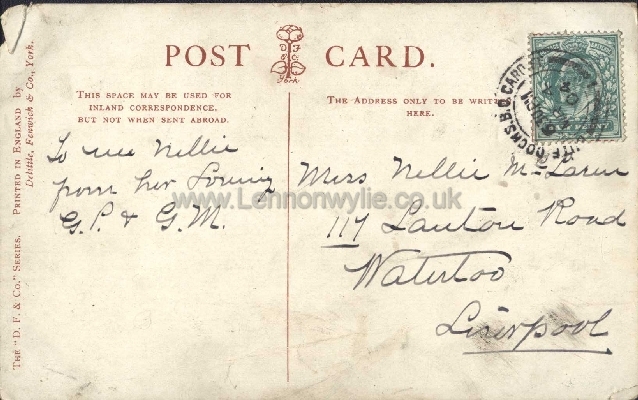 POST CARD.
THIS SPACE MAY BE USED FOR
INLAND CORRESPONDENCE,
BUT NOT WHEN SENT ABROAD.
D F & Co York
THE ADDRESS ONLY TO BE WRITTEN
HERE.
To wee Nellie
from her loving
G.P. & G.M.
Miss Nellie McLaren
117 Road
Waterloo
Liverpool
DOCKS.B.O.CARDIFF
THE "D. F. & CO." SERIES. PRINTED IN ENGLAND by
Delittle, Fenwick & Co., York.
www.Lennonwylie.co.uk